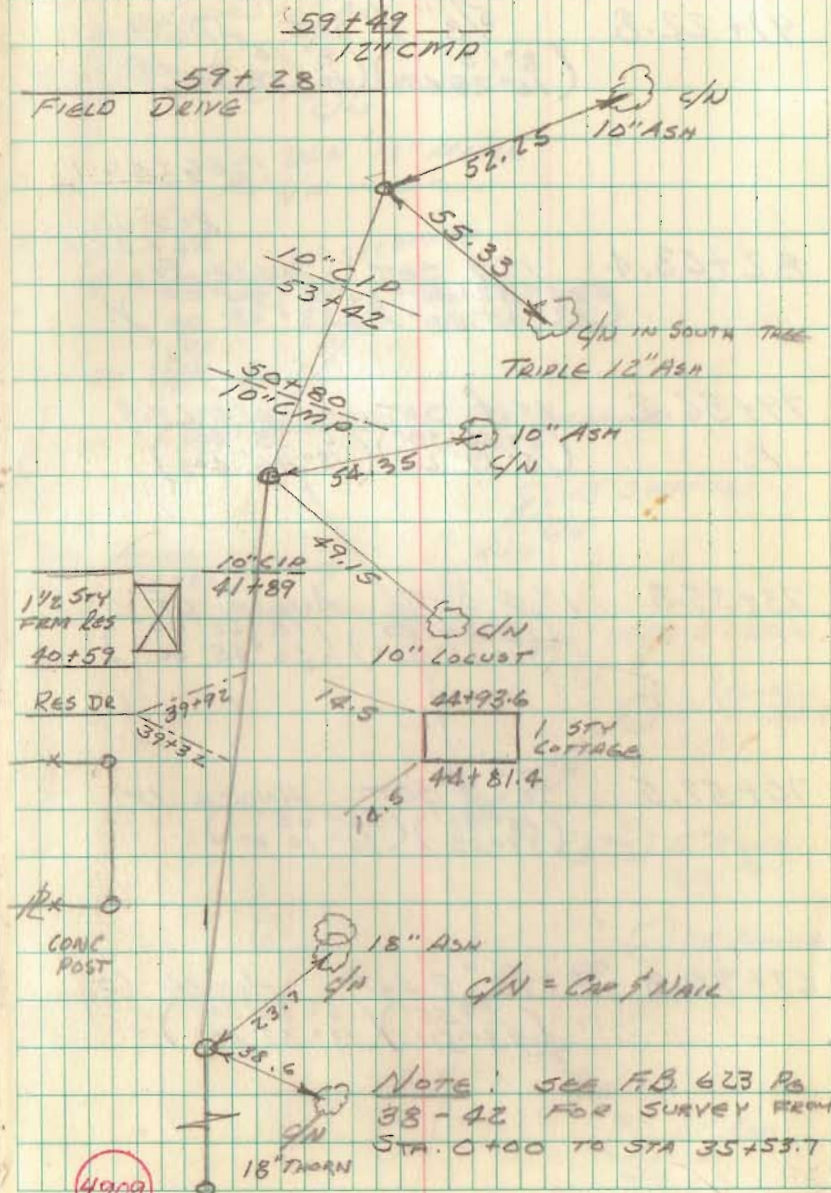 59+49
12" CMP
59+28
FIELD DRIVE
C/N
10" ASH
52.25
55.33
10" CIP
53+42
C/N IN SOUTH TREE
TRIPLE 12" ASH
50+80
10" CMP
10" ASH
C/N
54.35
49.15
10" CIP
41+89
1 1/2 STY
FRM RES
40+59
C/N
10" LOCUST
RES DR
39+92
39+32
14.5
44+93.6
1 STY
COTTAGE
44+81.4
14.5
CONC
POST
18" ASH
C/N
23.7
C/N = CAP & NAIL
38.6
C/N
18" THORN
NOTE: SEE F.B. 623 PG
38-42 FOR SURVEY FROM
STA. 0+00 TO STA 35+53.7
4909